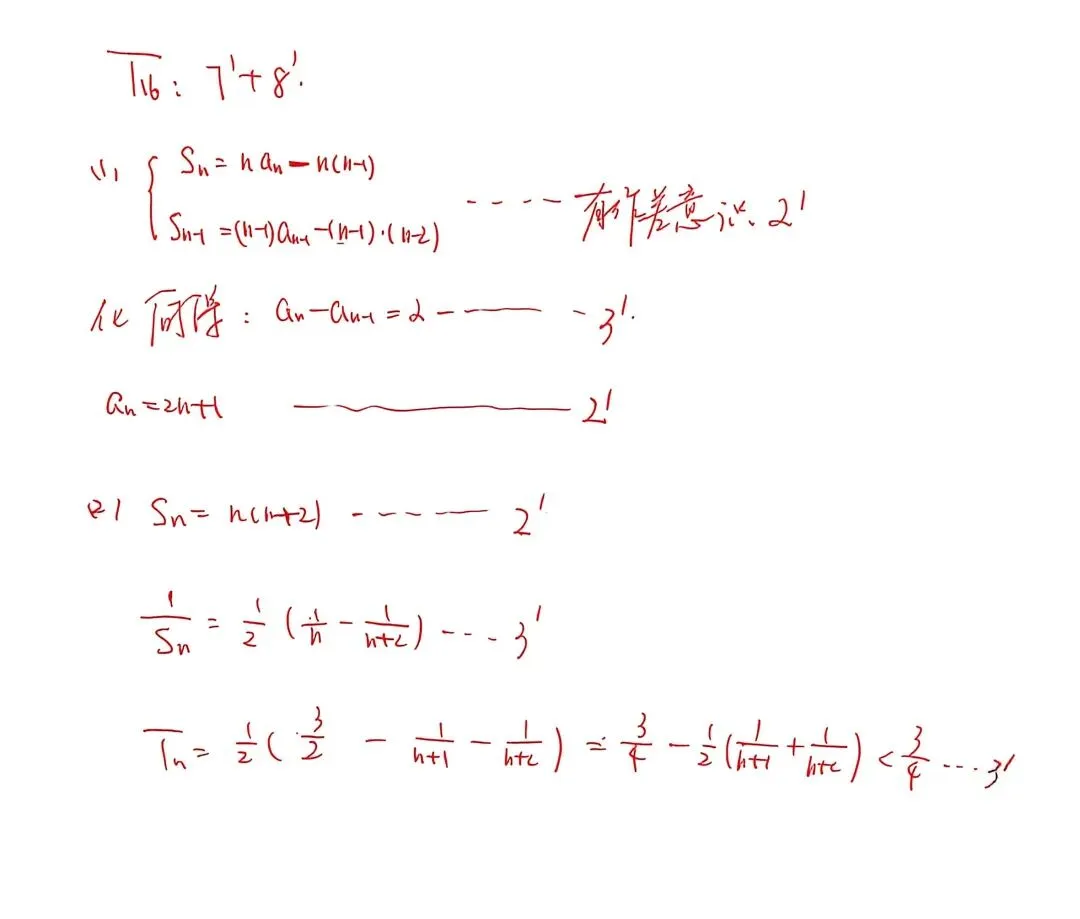 T16: 7'+8'.
(1) { Sn = n an − n(n-1)
Sn-1 = (n-1)an-1 −(n-1)·(n-2) ---- 有作差意识. 2'
化简得: an − an-1 = 2 ------ 3'.
an = 2n+1 —— 2'
(2) Sn = n(n+2) ------ 2'
1/Sn = 1/2 (1/n − 1/(n+2)) --- 3'
Tn = 1/2 ( 3/2 − 1/(n+1) − 1/(n+2) ) = 3/4 − 1/2 (1/(n+1) + 1/(n+2)) < 3/4 --- 3'